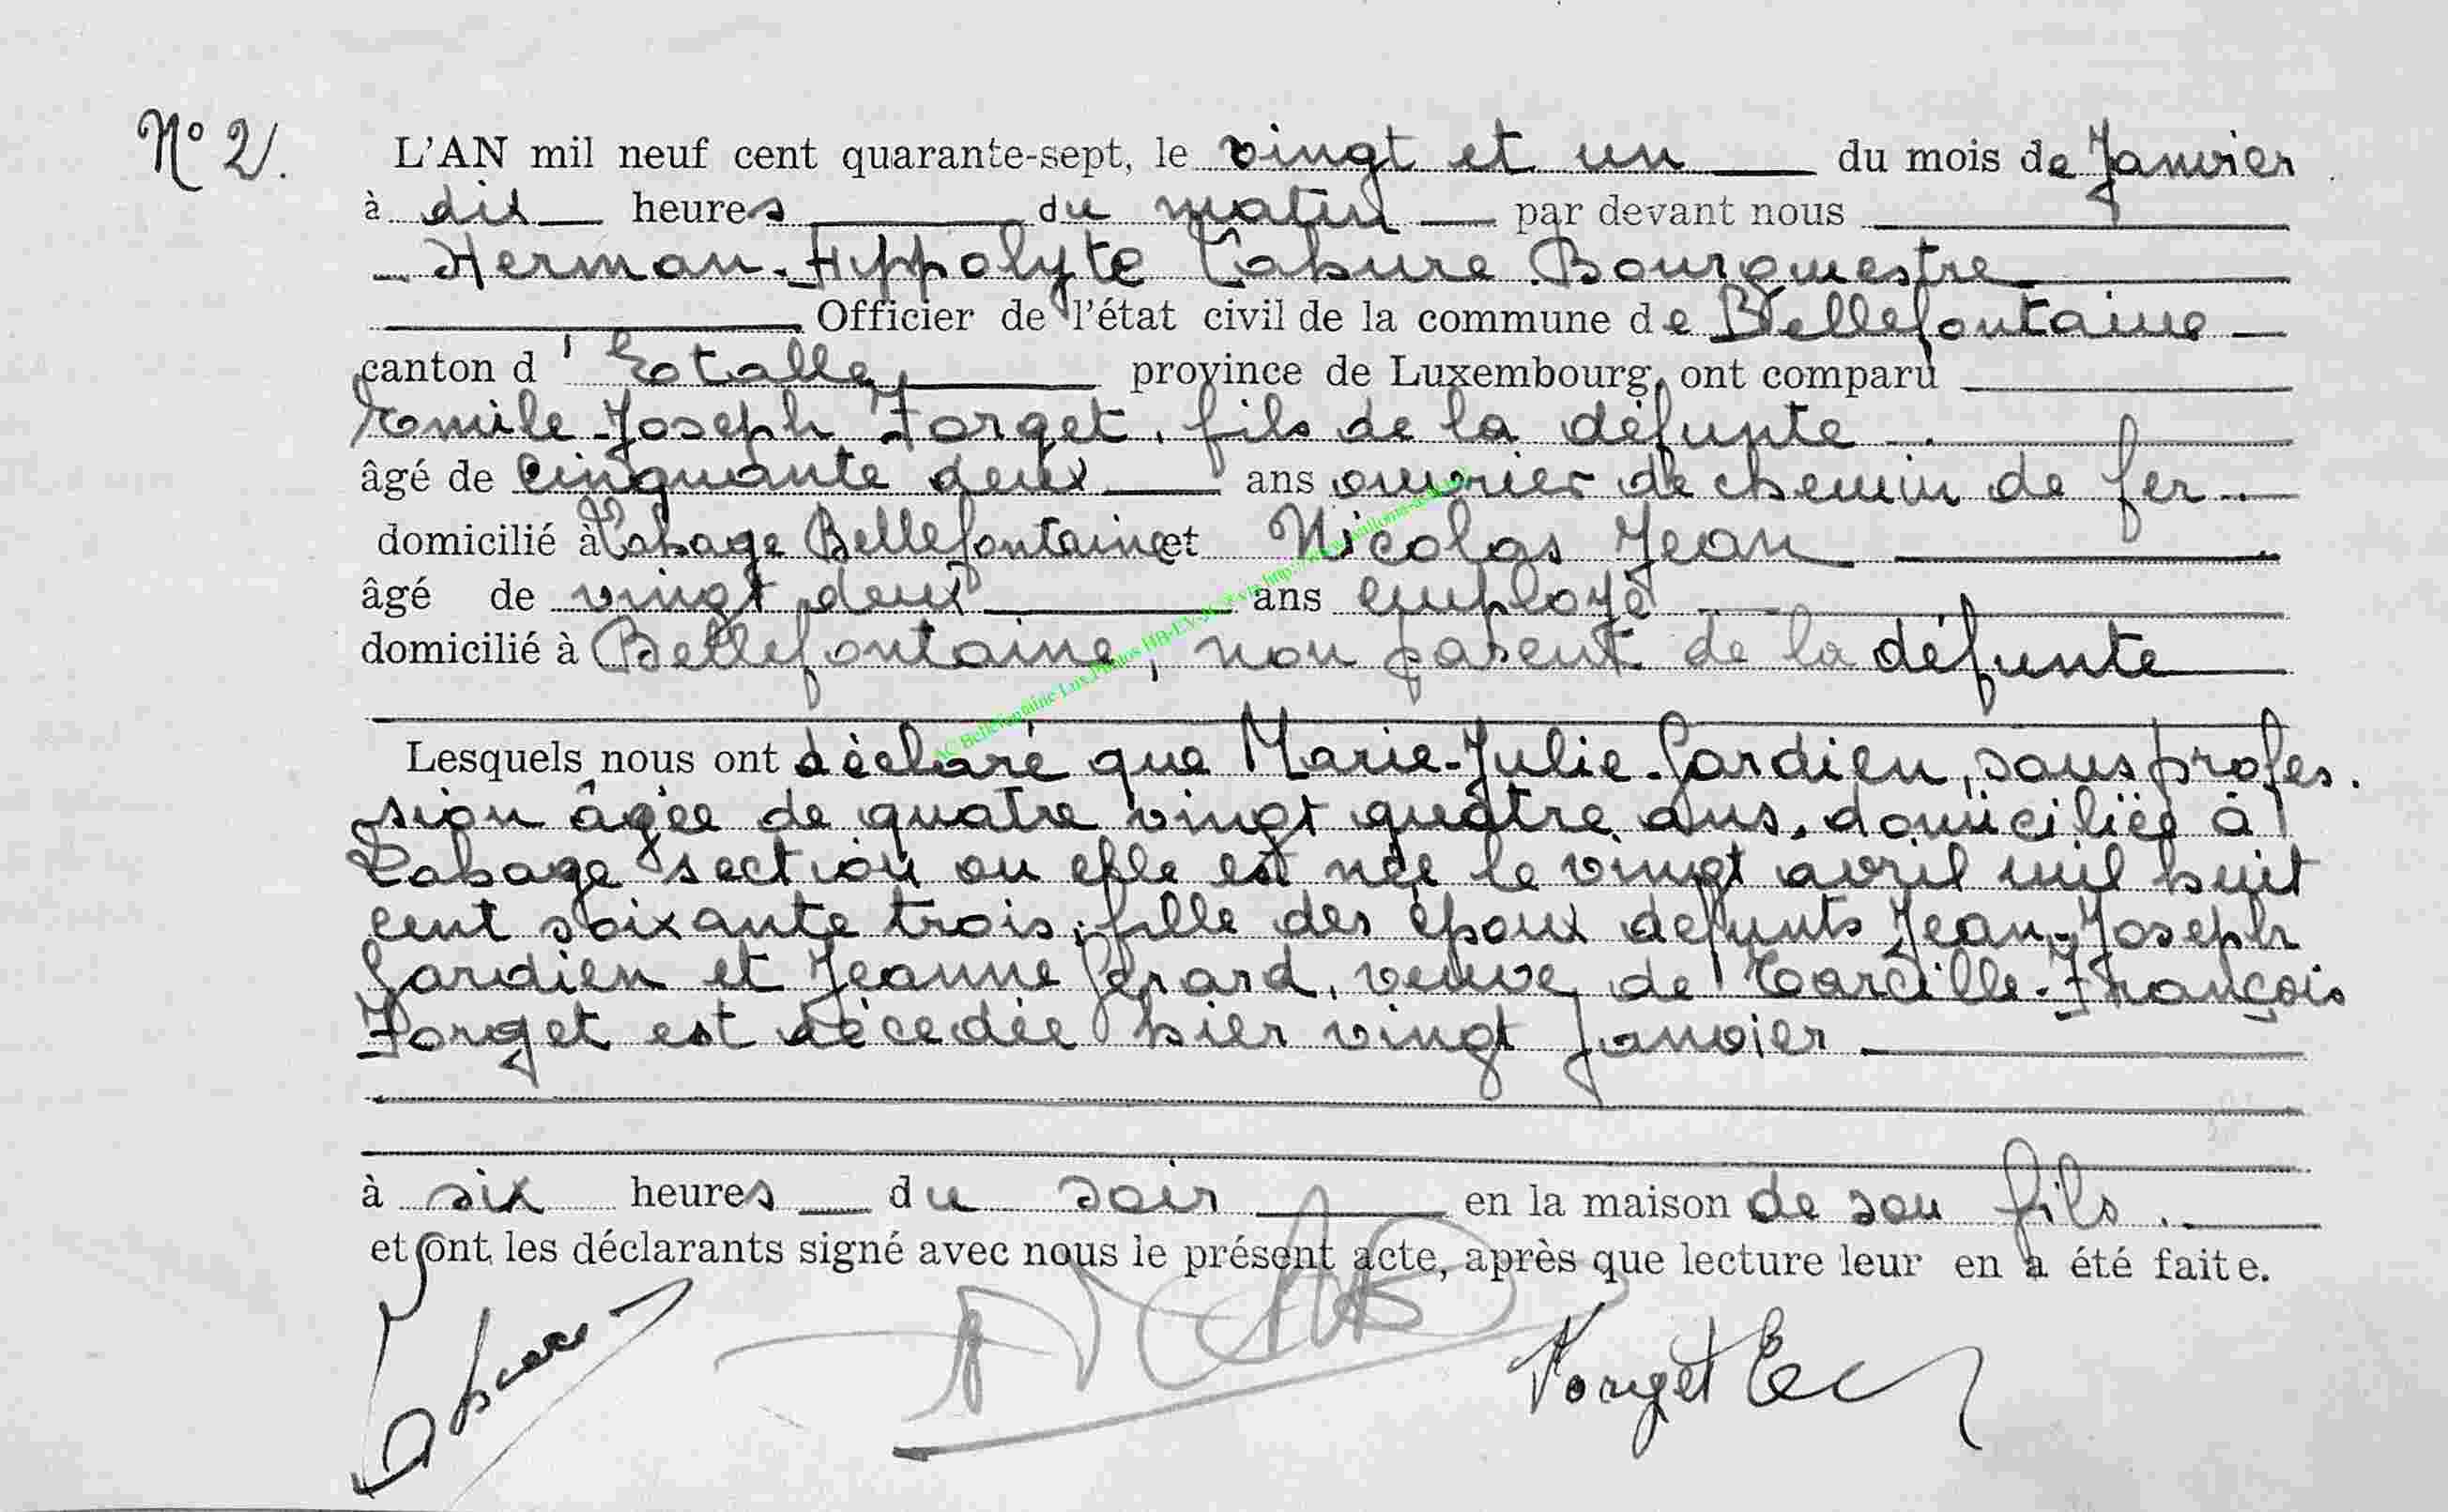 N° 2.
L'AN mil neuf cent quarante-sept, le vingt et un du mois de Janvier
à dix heures du matin par devant nous
Herman-Hippolyte Labure Bourgmestre
Officier de l'état civil de la commune de Bellefontaine
canton d'Etalle province de Luxembourg, ont comparu
Emile-Joseph Forget, fils de la défunte.
âgé de cinquante deux ans ouvrier de chemin de fer.
domicilié à Lahage Bellefontaine et Nicolas Jean
âgé de vingt deux ans employé
domicilié à Bellefontaine, non parent de la défunte
Lesquels nous ont déclaré que Marie-Julie-Gardien, sans profes.
sion âgée de quatre vingt quatre ans, domiciliée à
Lahage section ou elle est née le vingt avril mil huit
cent soixante trois, fille des époux defunts Jean-Joseph
Gardien et Jeanne Gérard, veuve de Tarcille-François
Forget est décedée hier vingt Janvier
à six heures du soir en la maison de son fils.
et ont les déclarants signé avec nous le présent acte, après que lecture leur en a été faite.
Forget E